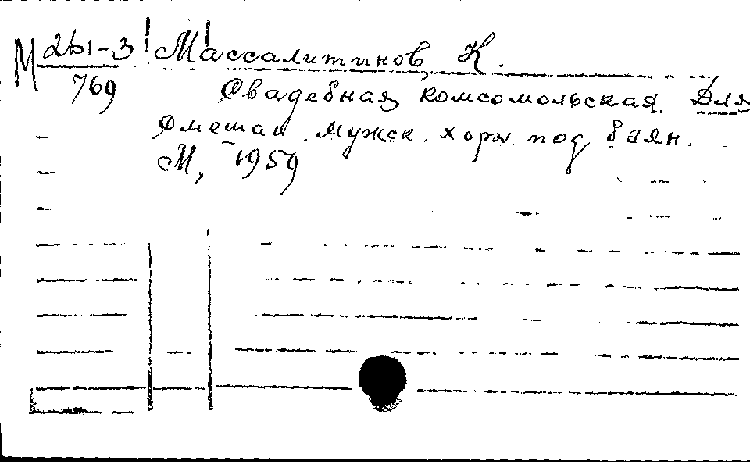 М 2Ы-3 Массалитинов, К.
769 Свадебная комсомольская. Для
смешан. мужск. хора под баян.
М., 1959